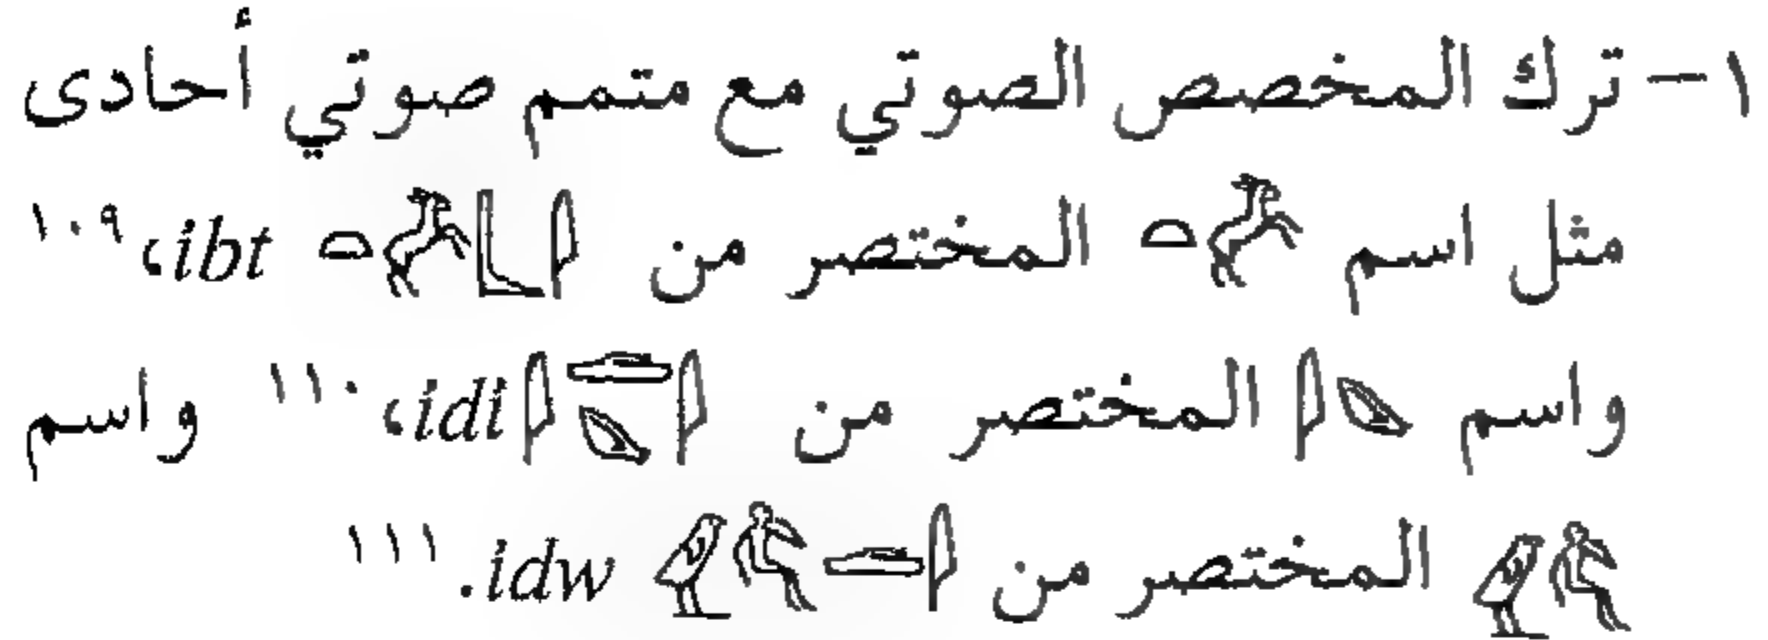 ١- ترك المخصص الصوتي مع متمم صوتي أحادى
مثل اسم 𓃙𓏏 المختصر من 𓇋𓃀𓃙𓏏 ibt،١٠٩
واسم 𓄔𓇋 المختصر من 𓇋𓂧𓄔𓇋 idi،١١٠ واسم
𓀔𓅱 المختصر من 𓇋𓂧𓀔𓅱 idw.١١١